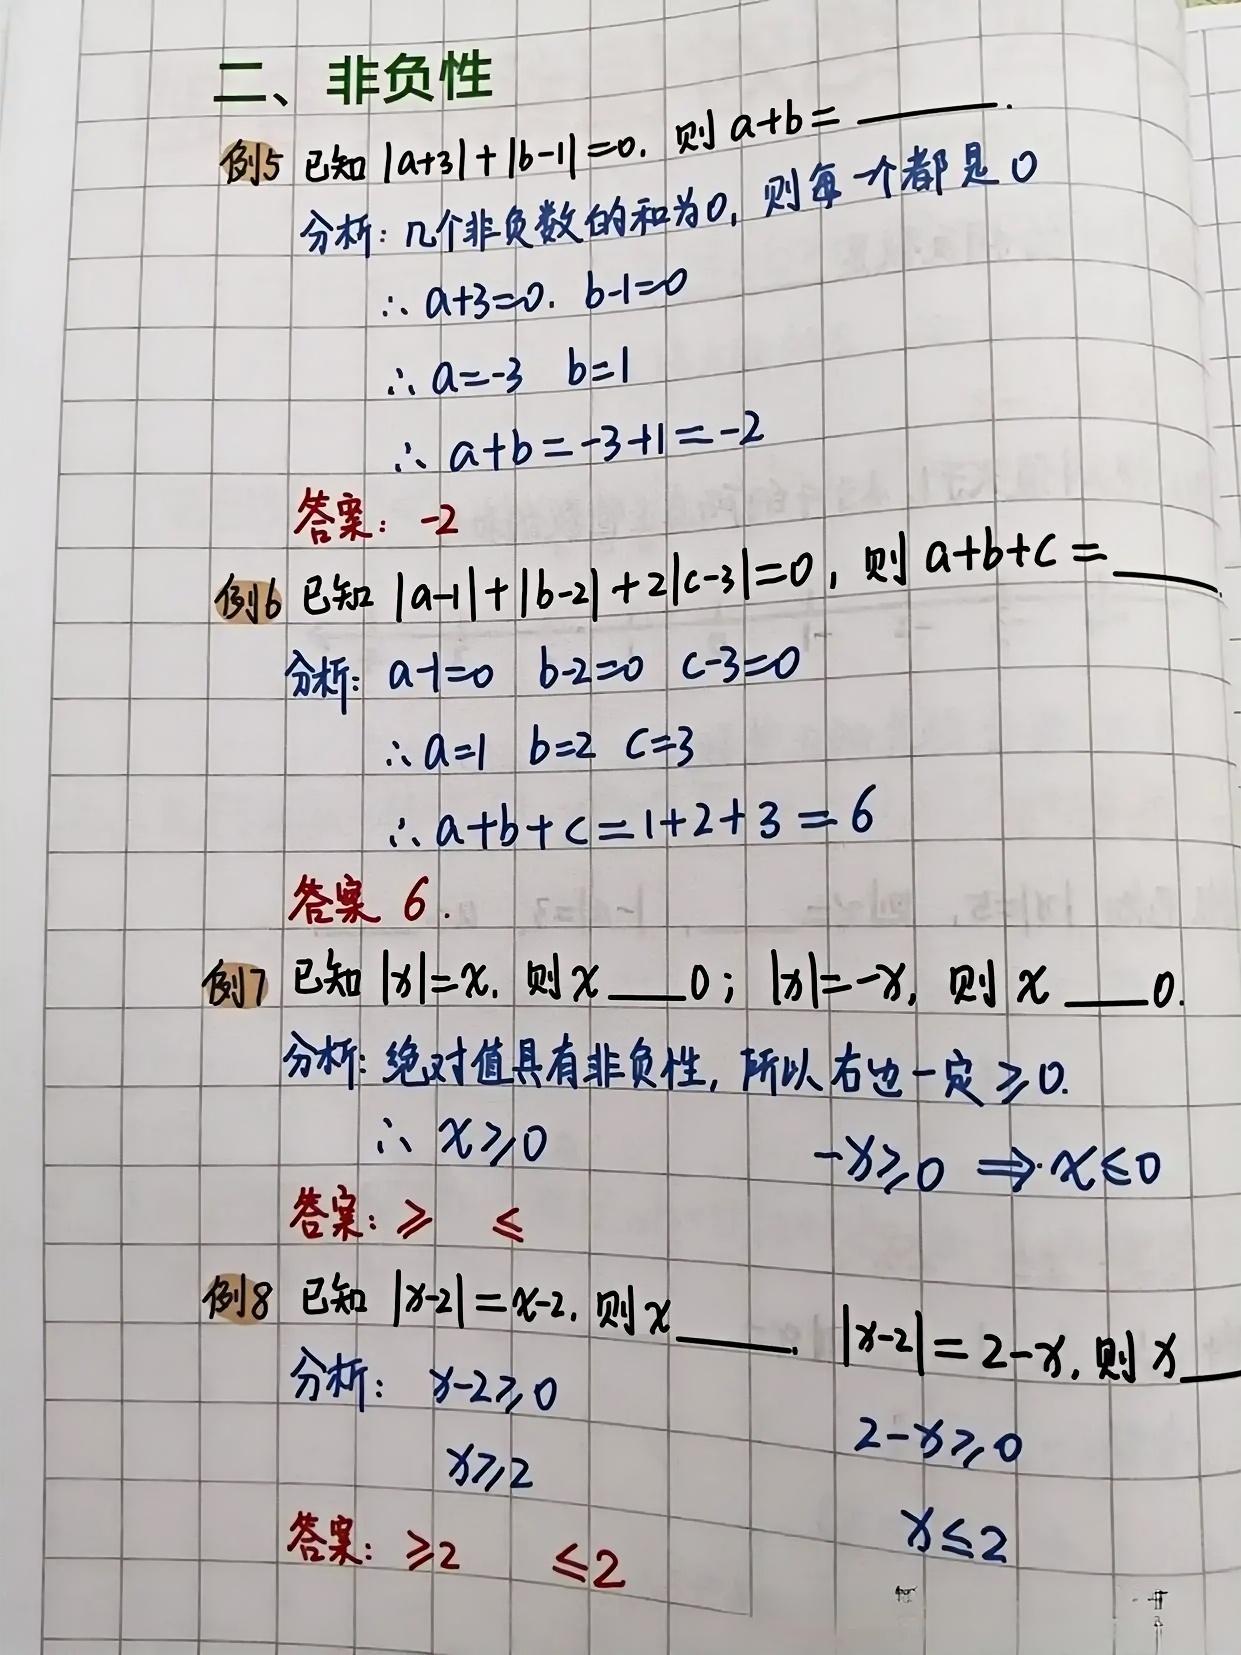 二、非负性
例5 已知 |a+3|+|b-1|=0. 则 a+b=______.
分析: 几个非负数的和为0, 则每一个都是0
∴ a+3=0. b-1=0
∴ a=-3 b=1
∴ a+b=-3+1=-2
答案: -2
例6 已知 |a-1|+|b-2|+2|c-3|=0, 则 a+b+c=______.
分析: a-1=0 b-2=0 c-3=0
∴ a=1 b=2 c=3
∴ a+b+c=1+2+3=6
答案 6.
例7 已知 |x|=x. 则 x ___0; |x|=-x, 则 x ___0.
分析: 绝对值具有非负性, 所以右边一定≥0.
∴ x≥0 -x≥0 ⇒ x≤0
答案: ≥ ≤
例8 已知 |x-2|=x-2. 则 x______. |x-2|=2-x, 则 x___
分析: x-2≥0 2-x≥0
x≥2 x≤2
答案: ≥2 ≤2